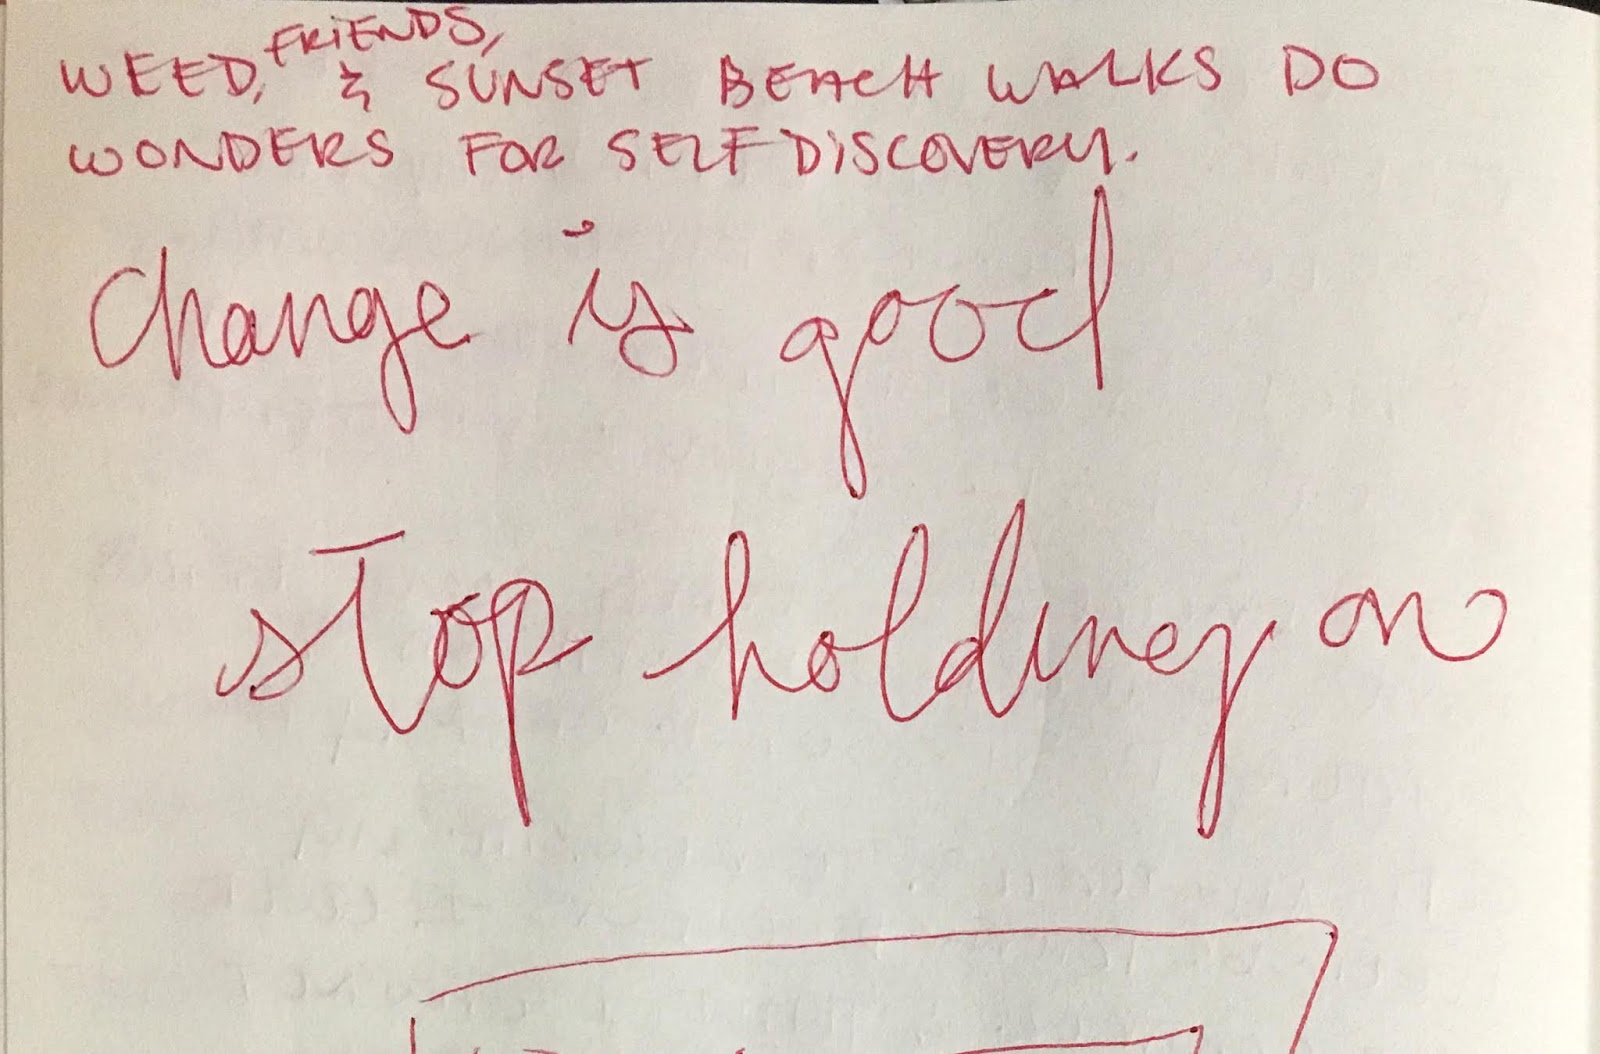 WEED, FRIENDS, & SUNSET BEACH WALKS DO
WONDERS FOR SELF DISCOVERY.
Change is good
stop holding on